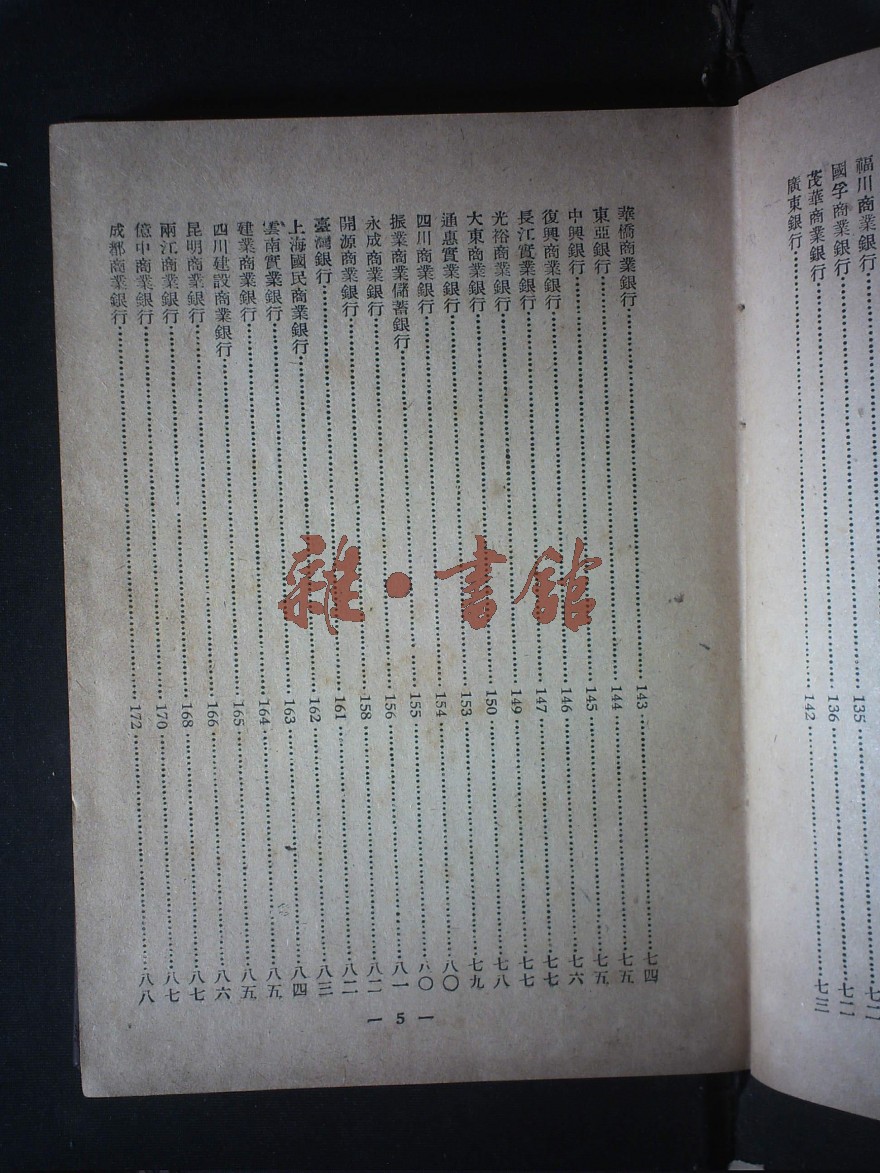 福川商業銀行
國孚商業銀行……135……七二
茂華商業銀行……136……七二
廣東銀行……142……七三
華僑商業銀行……143……七四
東亞銀行……144……七五
中興銀行……145……七五
復興商業銀行……146……七六
長江實業銀行……147……七七
光裕商業銀行……149……七七
大東商業銀行……150……七八
通惠實業銀行……153……七九
四川商業銀行……154……八〇
振業商業儲蓄銀行……155……八〇
永成商業銀行……156……八一
開源商業銀行……158……八二
臺灣銀行……161……八二
上海國民商業銀行……162……八三
雲南實業銀行……163……八四
建業商業銀行……164……八五
四川建設商業銀行……165……八五
昆明商業銀行……166……八六
兩江商業銀行……168……八七
億中商業銀行……170……八七
成都商業銀行……172……八八
— 5 —
雜·書館